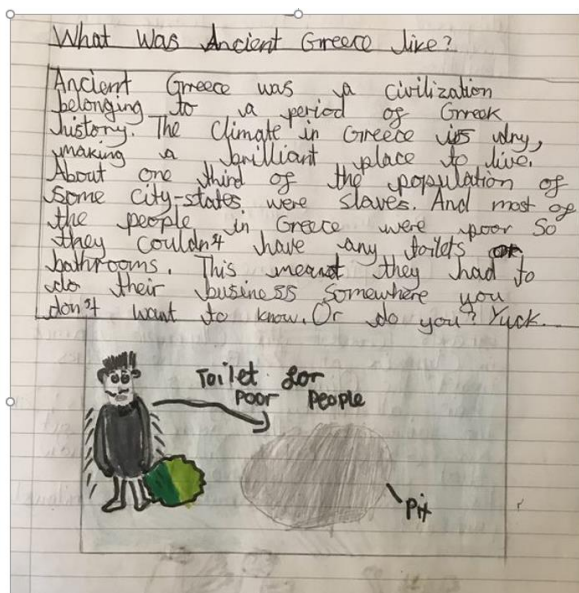 What Was Ancient Greece like?
Ancient Greece was a civilization
belonging to a period of Greek
history. The Climate in Greece is dry,
making a brilliant place to live.
About one third of the population of
some city-states were slaves. And most of
the people in Greece were poor So
they couldn't have any toilets or
bathrooms. This meant they had to
do their business somewhere you
don't want to know. Or do you? Yuck...
Toilet for
Poor People
Pit